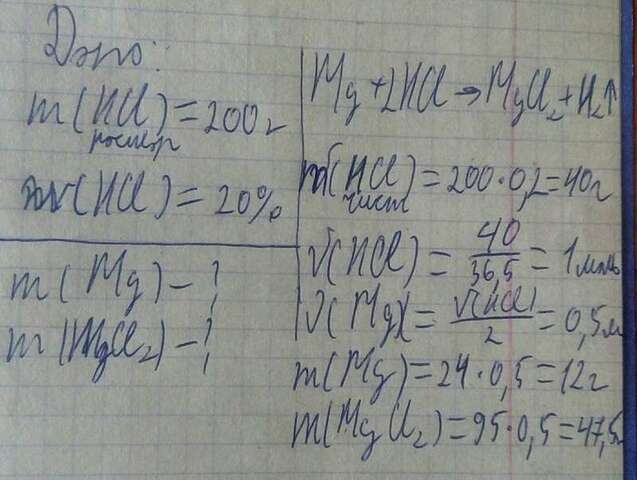 Дано:
m(HCl) = 200г
раствор
w(HCl) = 20%
m(Mg) - ?
m(MgCl₂) - ?
Mg + 2HCl → MgCl₂ + H₂↑
m(HCl) = 200·0,2 = 40г
чист
ν(HCl) = 40/36,5 = 1моль
ν(Mg) = ν(HCl)/2 = 0,5м
m(Mg) = 24·0,5 = 12г
m(MgCl₂) = 95·0,5 = 47,5